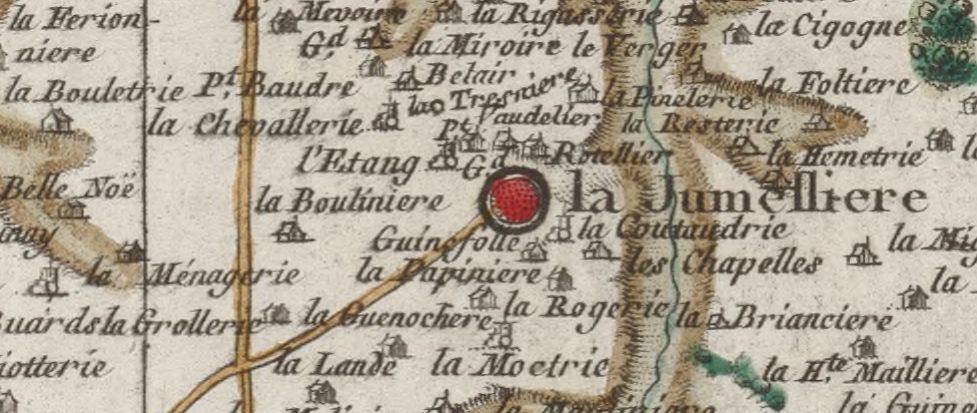 la Ferion-
niere
la
Mevoirie
la Rigasserie
la Cigogne
G.d
la Miroire
le Verger
la Bouletrie
P.t Baudre
Belair
la Foltiere
la Tresniere
la Pinelerie
la Chevallerie
P.t
Vaudelier
la Resterie
l'Etang
G.d
Rotellier
la Hemetrie
Belle Noë
la Bouliniere
la Jumelliere
Guinefolle
la Coutaudrie
la Ménagerie
la Papiniere
les Chapelles
la
la Grollerie
la Guenochere
la Rogerie
la Brianciere
la Lande
la Moctrie
la H.te Mailliere